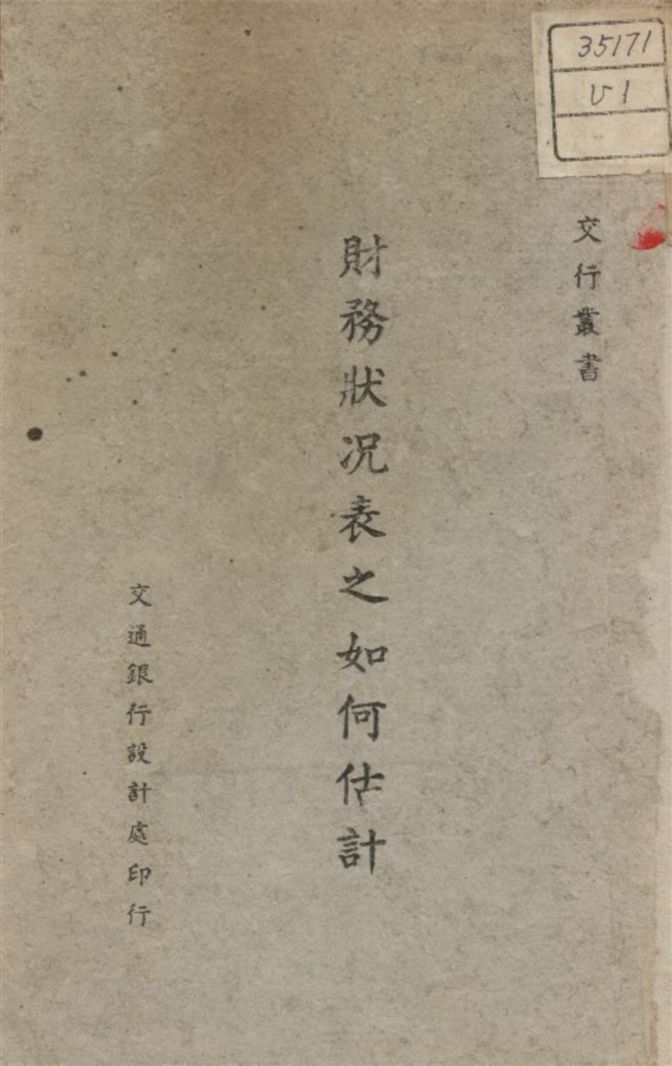 35171
V1
交行叢書
財務狀况表之如何估計
交通銀行設計處印行